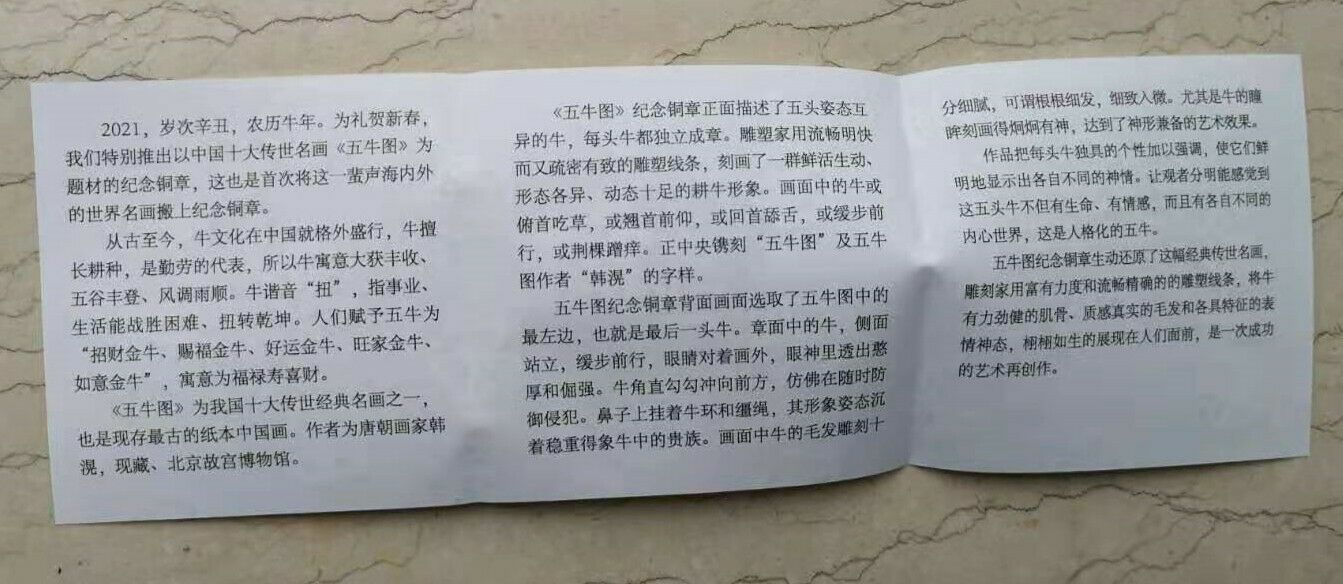 2021，岁次辛丑，农历牛年。为礼贺新春，
我们特别推出以中国十大传世名画《五牛图》为
题材的纪念铜章，这也是首次将这一蜚声海内外
的世界名画搬上纪念铜章。
从古至今，牛文化在中国就格外盛行，牛擅
长耕种，是勤劳的代表，所以牛寓意大获丰收、
五谷丰登、风调雨顺。牛谐音“扭”，指事业、
生活能战胜困难、扭转乾坤。人们赋予五牛为
“招财金牛、赐福金牛、好运金牛、旺家金牛、
如意金牛”，寓意为福禄寿喜财。
《五牛图》为我国十大传世经典名画之一，
也是现存最古的纸本中国画。作者为唐朝画家韩
滉，现藏、北京故宫博物馆。
《五牛图》纪念铜章正面描述了五头姿态互
异的牛，每头牛都独立成章。雕塑家用流畅明快
而又疏密有致的雕塑线条，刻画了一群鲜活生动、
形态各异、动态十足的耕牛形象。画面中的牛或
俯首吃草，或翘首前仰，或回首舔舌，或缓步前
行，或荆棵蹭痒。正中央镌刻“五牛图”及五牛
图作者“韩滉”的字样。
五牛图纪念铜章背面画面选取了五牛图中的
最左边，也就是最后一头牛。章面中的牛，侧面
站立，缓步前行，眼睛对着画外，眼神里透出憨
厚和倔强。牛角直勾勾冲向前方，仿佛在随时防
御侵犯。鼻子上挂着牛环和缰绳，其形象姿态沉
着稳重得象牛中的贵族。画面中牛的毛发雕刻十
分细腻，可谓根根细发，细致入微。尤其是牛的瞳
眸刻画得炯炯有神，达到了神形兼备的艺术效果。
作品把每头牛独具的个性加以强调，使它们鲜
明地显示出各自不同的神情。让观者分明能感觉到
这五头牛不但有生命、有情感，而且有各自不同的
内心世界，这是人格化的五牛。
五牛图纪念铜章生动还原了这幅经典传世名画，
雕刻家用富有力度和流畅精确的的雕塑线条，将牛
有力劲健的肌骨、质感真实的毛发和各具特征的表
情神态，栩栩如生的展现在人们面前，是一次成功
的艺术再创作。